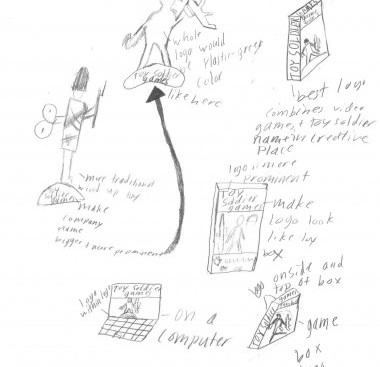 whole
logo would
plastic-green
color
like here
Toy Soldier
games
TOY SOLDIER
games
best logo
combines video
games + toy soldier
name in creative
place
more traditional
wind up toy
make
company
name
bigger + more prominent
Soldier
games
logo more
prominent
Toy
Soldier
games
make
logo look
like toy
box
logo
Toy Soldier
games
on a
computer
logo on side and
top of box
TOY SOLDIER
game
box